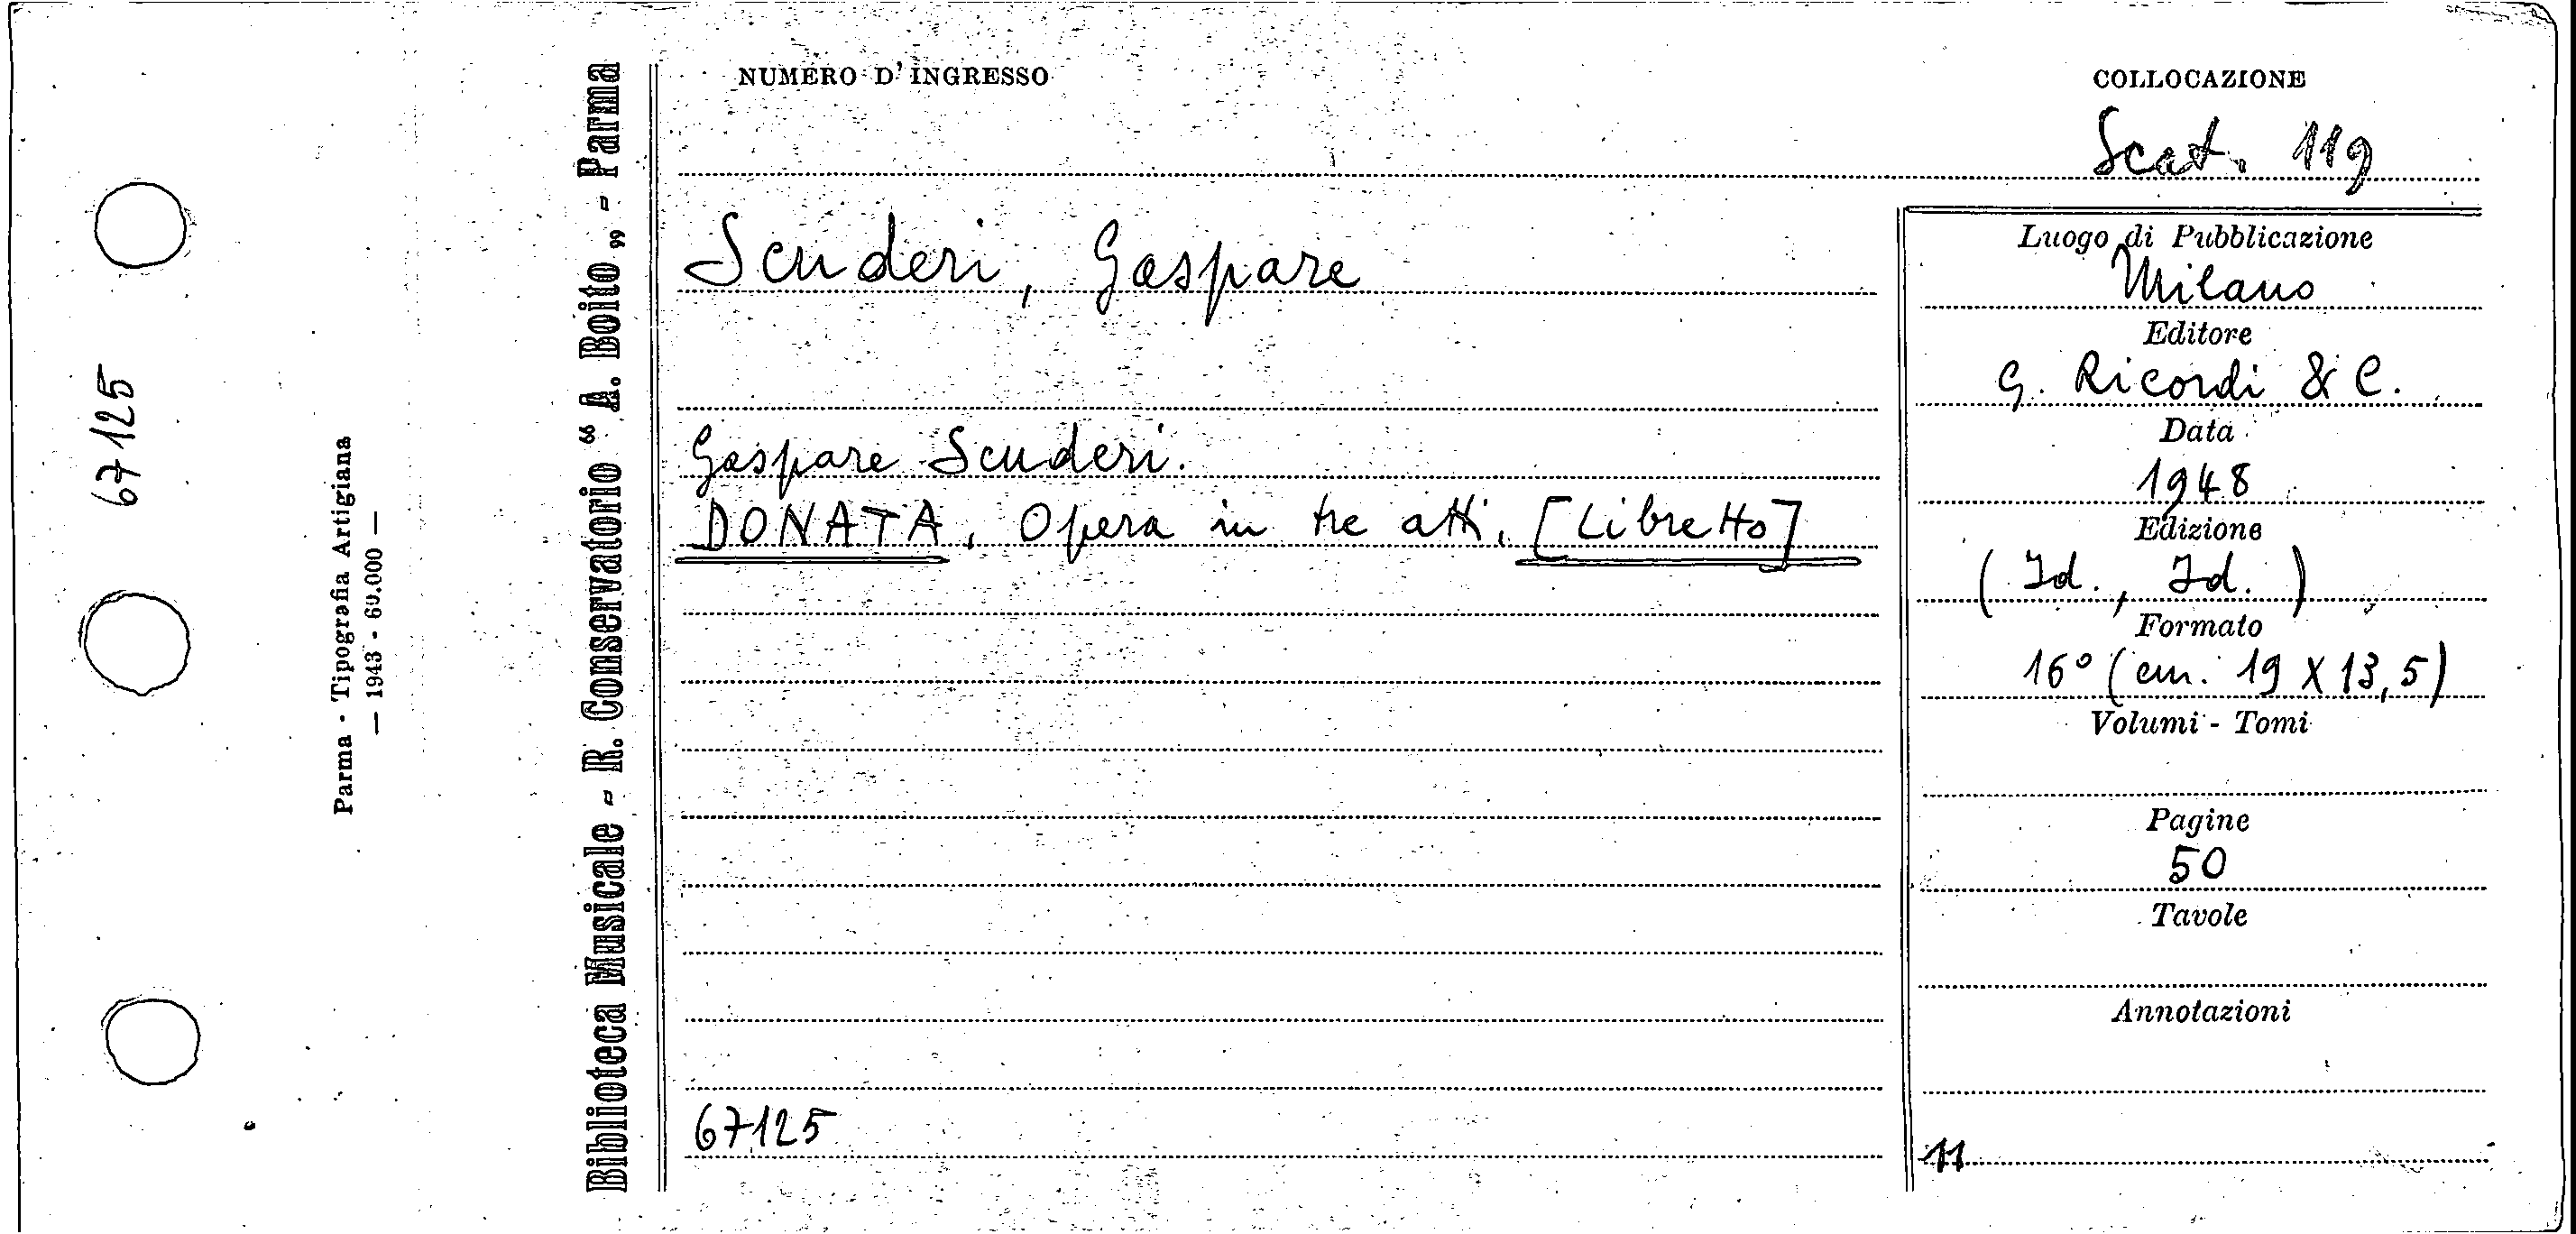 67125
Parma - Tipografia Artigiana
— 1943 - 60.000 —
Biblioteca Musicale - R. Conservatorio “ A. Boito „ - Parma
NUMERO D' INGRESSO
Scuderi, Gaspare
Gaspare Scuderi.
DONATA. Opera in tre atti. [Libretto]
67125
COLLOCAZIONE
Scat. 119
Luogo di Pubblicazione
Milano
Editore
G. Ricordi & C.
Data
1948
Edizione
(Id., Id.)
Formato
16° (cm. 19 X 13,5)
Volumi - Tomi
Pagine
50
Tavole
Annotazioni
11